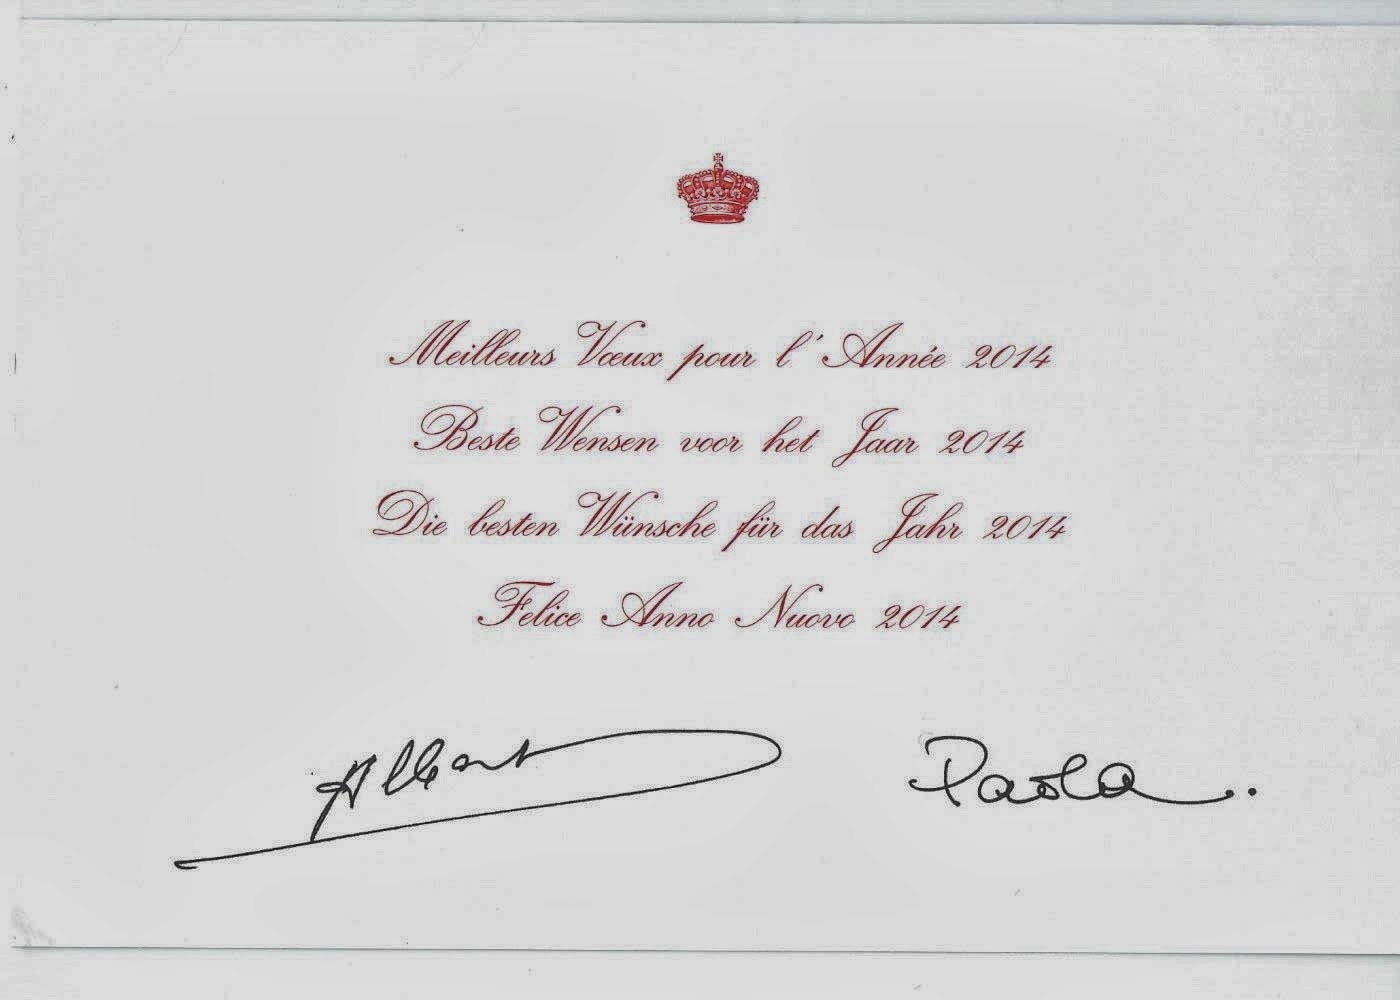 Meilleurs Vœux pour l'Année 2014
Beste Wensen voor het Jaar 2014
Die besten Wünsche für das Jahr 2014
Felice Anno Nuovo 2014
Albert Paola.